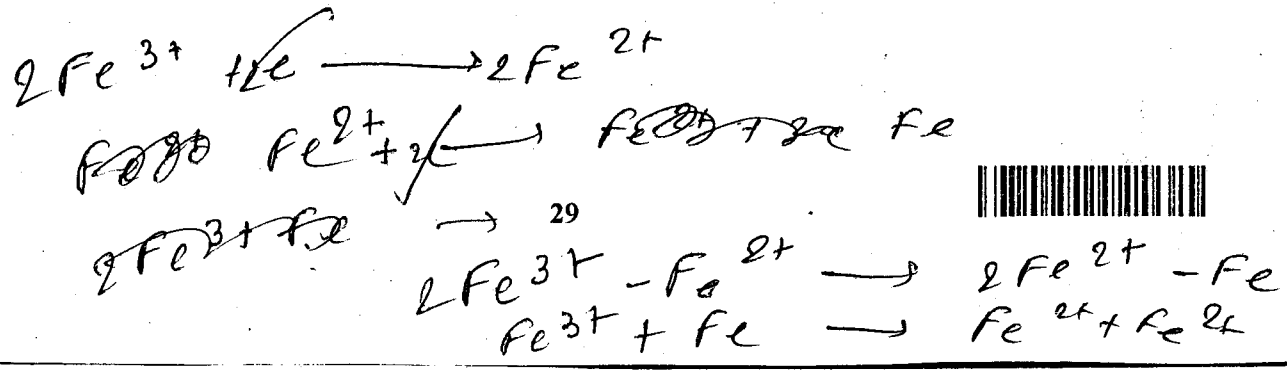 2Fe³⁺ +2e ⟶ 2Fe²⁺
Fe²⁺ +2e ⟶ Fe
2Fe³⁺ Fe ⟶
29
2Fe³⁺ - Fe²⁺ ⟶ 2Fe²⁺ - Fe
Fe³⁺ + Fe ⟶ Fe²⁺ + Fe²⁺